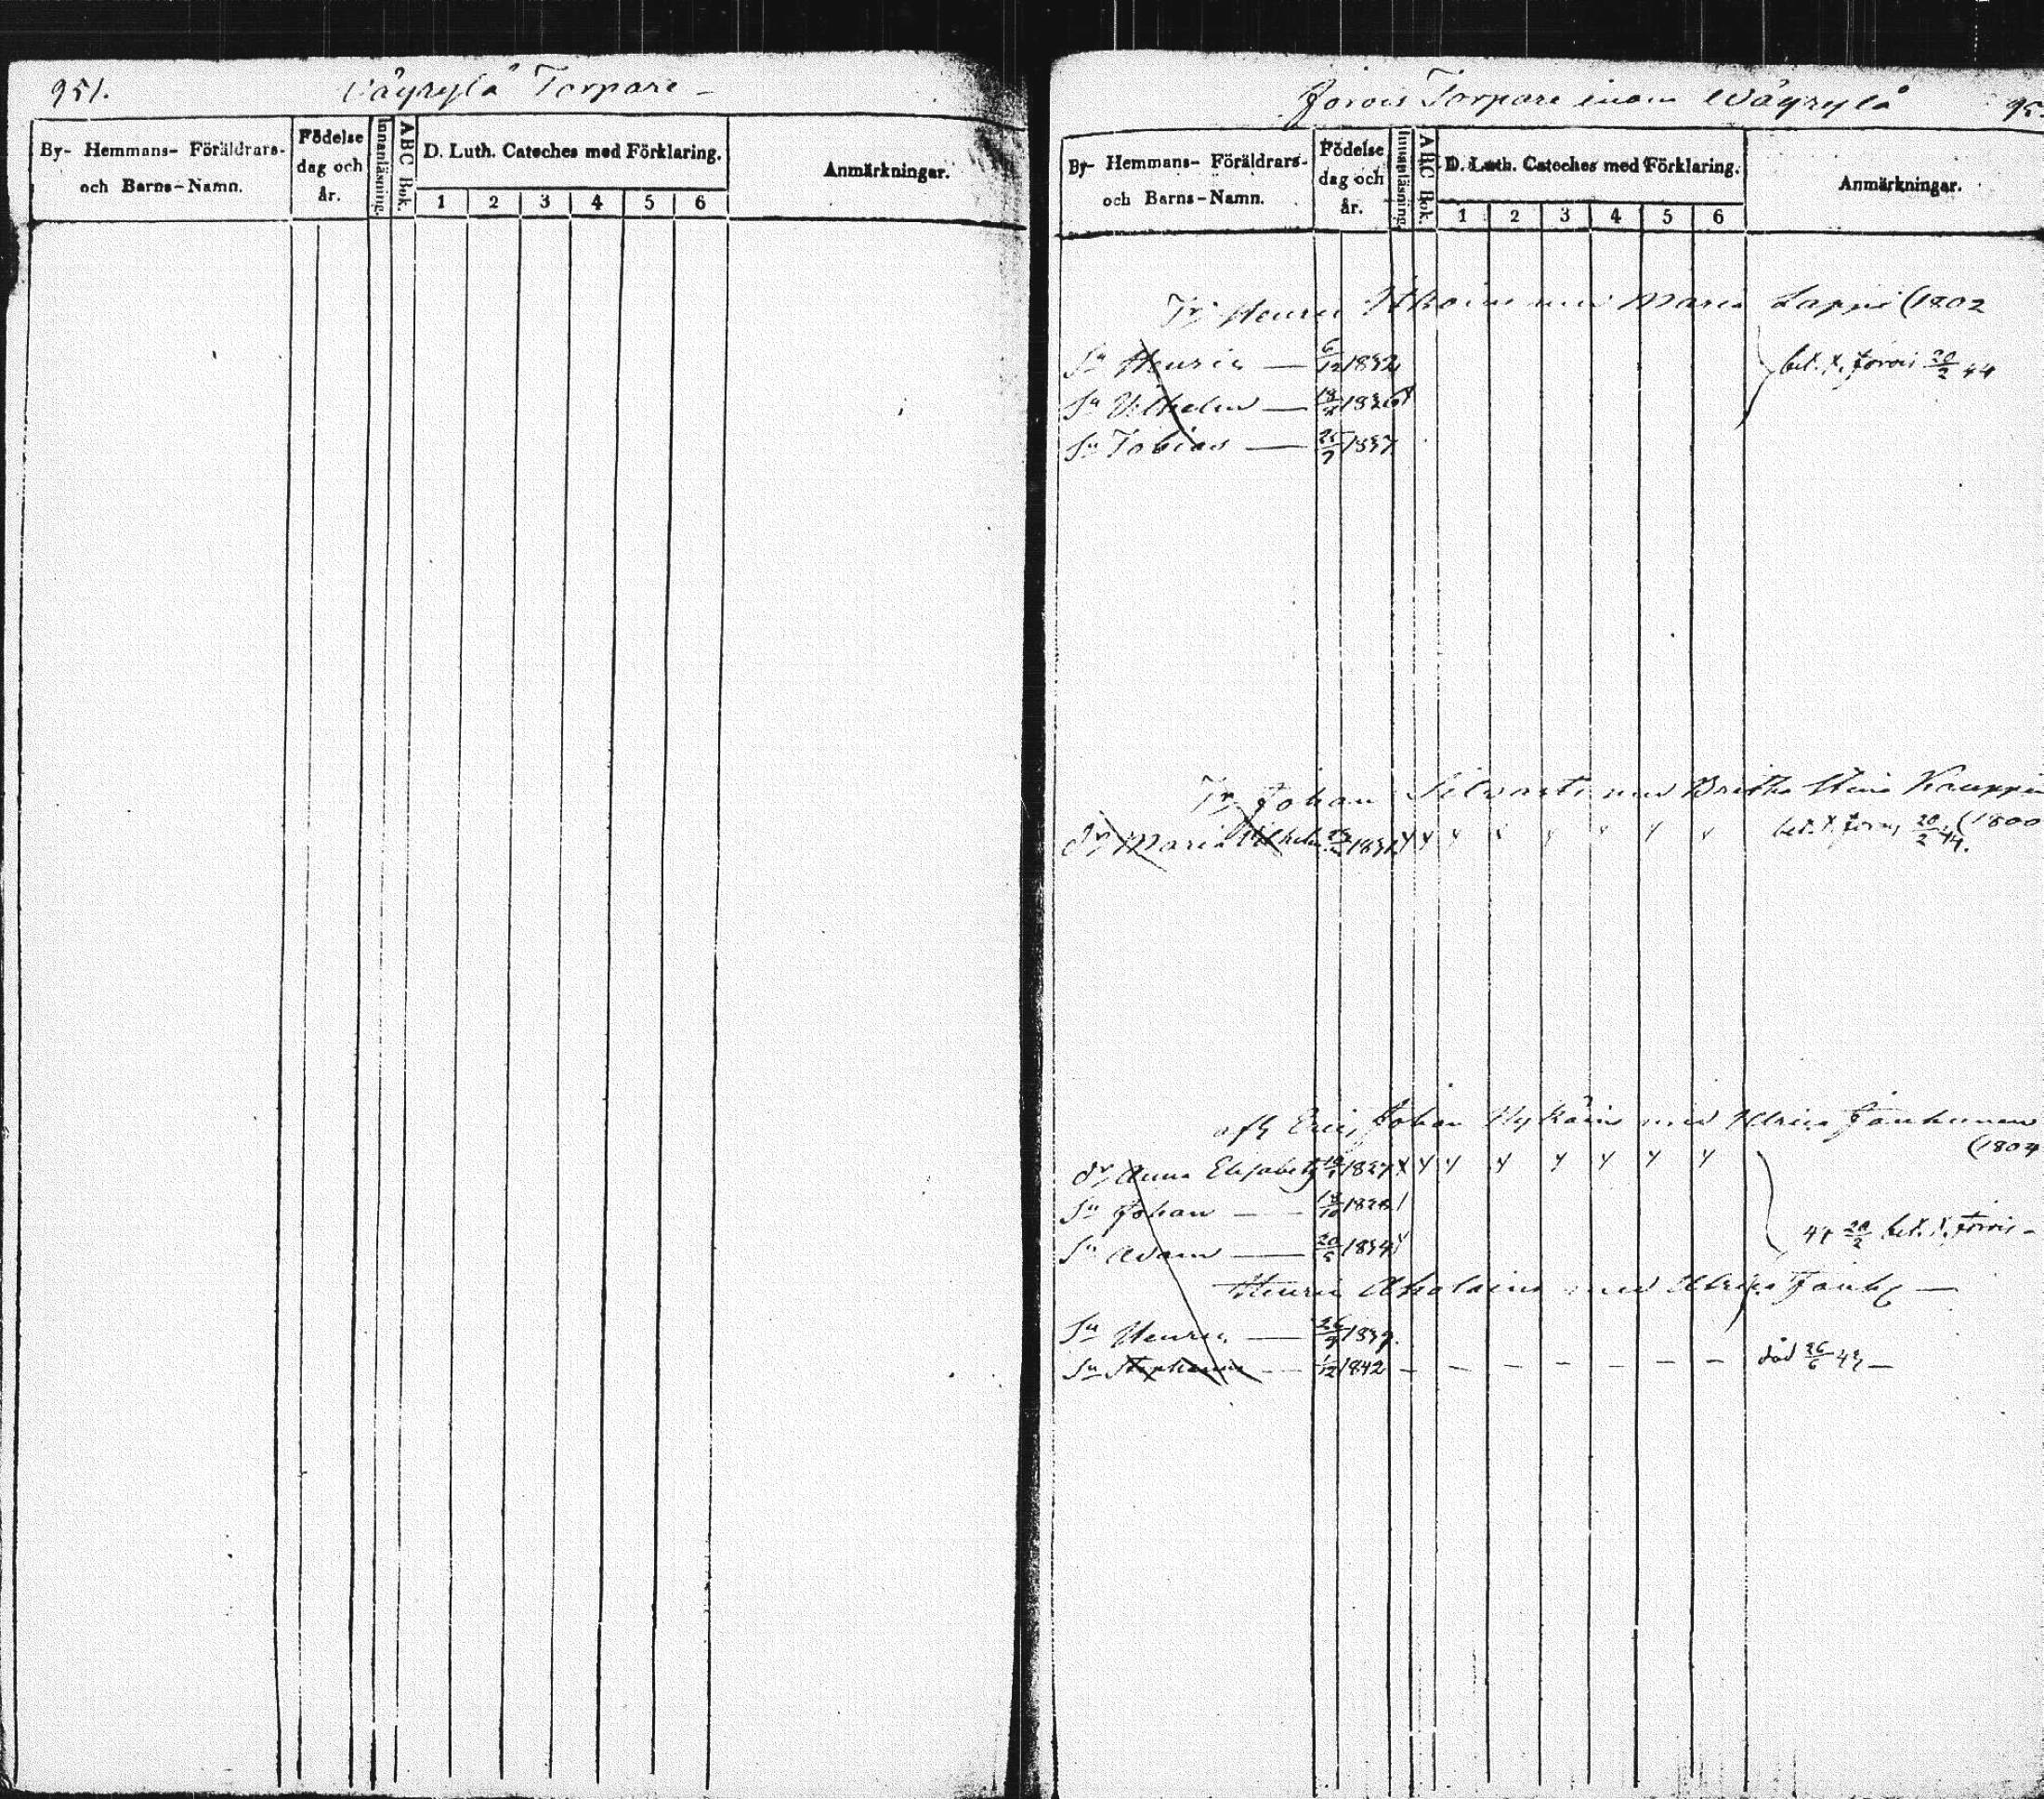 951. Wäyrylä Torpare –
By- Hemmans- Föräldrars- och Barns-Namn.
Födelse dag och år.
Innanläsning.
ABC Bok.
D. Luth. Cateches med Förklaring.
1 2 3 4 5 6
Anmärkningar.
Jorois Torpare inom Wäyrylä 95
By- Hemmans- Föräldrars- och Barns-Namn.
Födelse dag och år.
Innanläsning.
ABC Bok.
D. Luth. Cateches med Förklaring.
1 2 3 4 5 6
Anmärkningar.
Tr Henric med Maria Lappi (1802
Sn Henric — 6/12 1832 bet. t. Jorois 20/2 44
Sn Vilhelm —
Sn Tobias — 25/7 1837
Tr Johan Silvasti med Britha Stina
dr Maria Vilhelm. bet. t. Jorois 20/2 44. (1800
afl Eric Johan Nykäin med Ulrica Jänhunen
(1804
dr Anna Elisabeth y y y y y y y
Sn Johan —
Sn Adam — 44 20/2 bet. t. Jorois –
Henric Aholain med Ulrica Jänh —
Sn Henric — 26/9 1839.
Sn Stephanus — 1/12 1842 – – – – – – – död 26/6 43 —